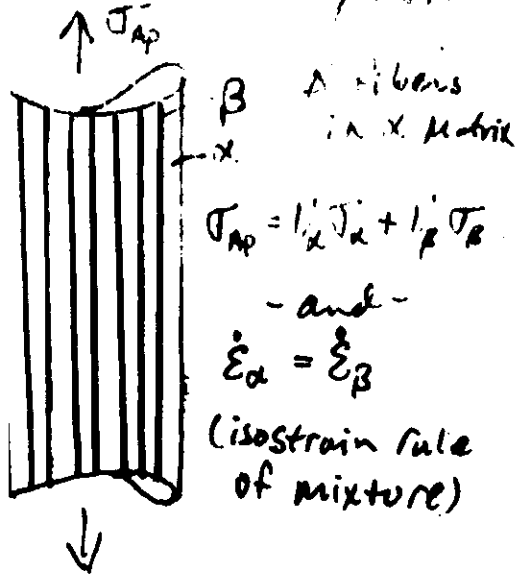 σ_Ap
β
fibers
α
in α Matrix
σ_Ap = V_α σ_α + V_β σ_β
- and -
ε̇_α = ε̇_β
(isostrain rule
of mixture)